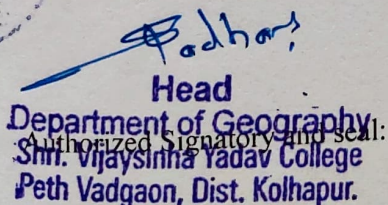 Head
Department of Geography
Authorized Signatory and seal:
Shri. Vijaysinha Yadav College
Peth Vadgaon, Dist. Kolhapur.